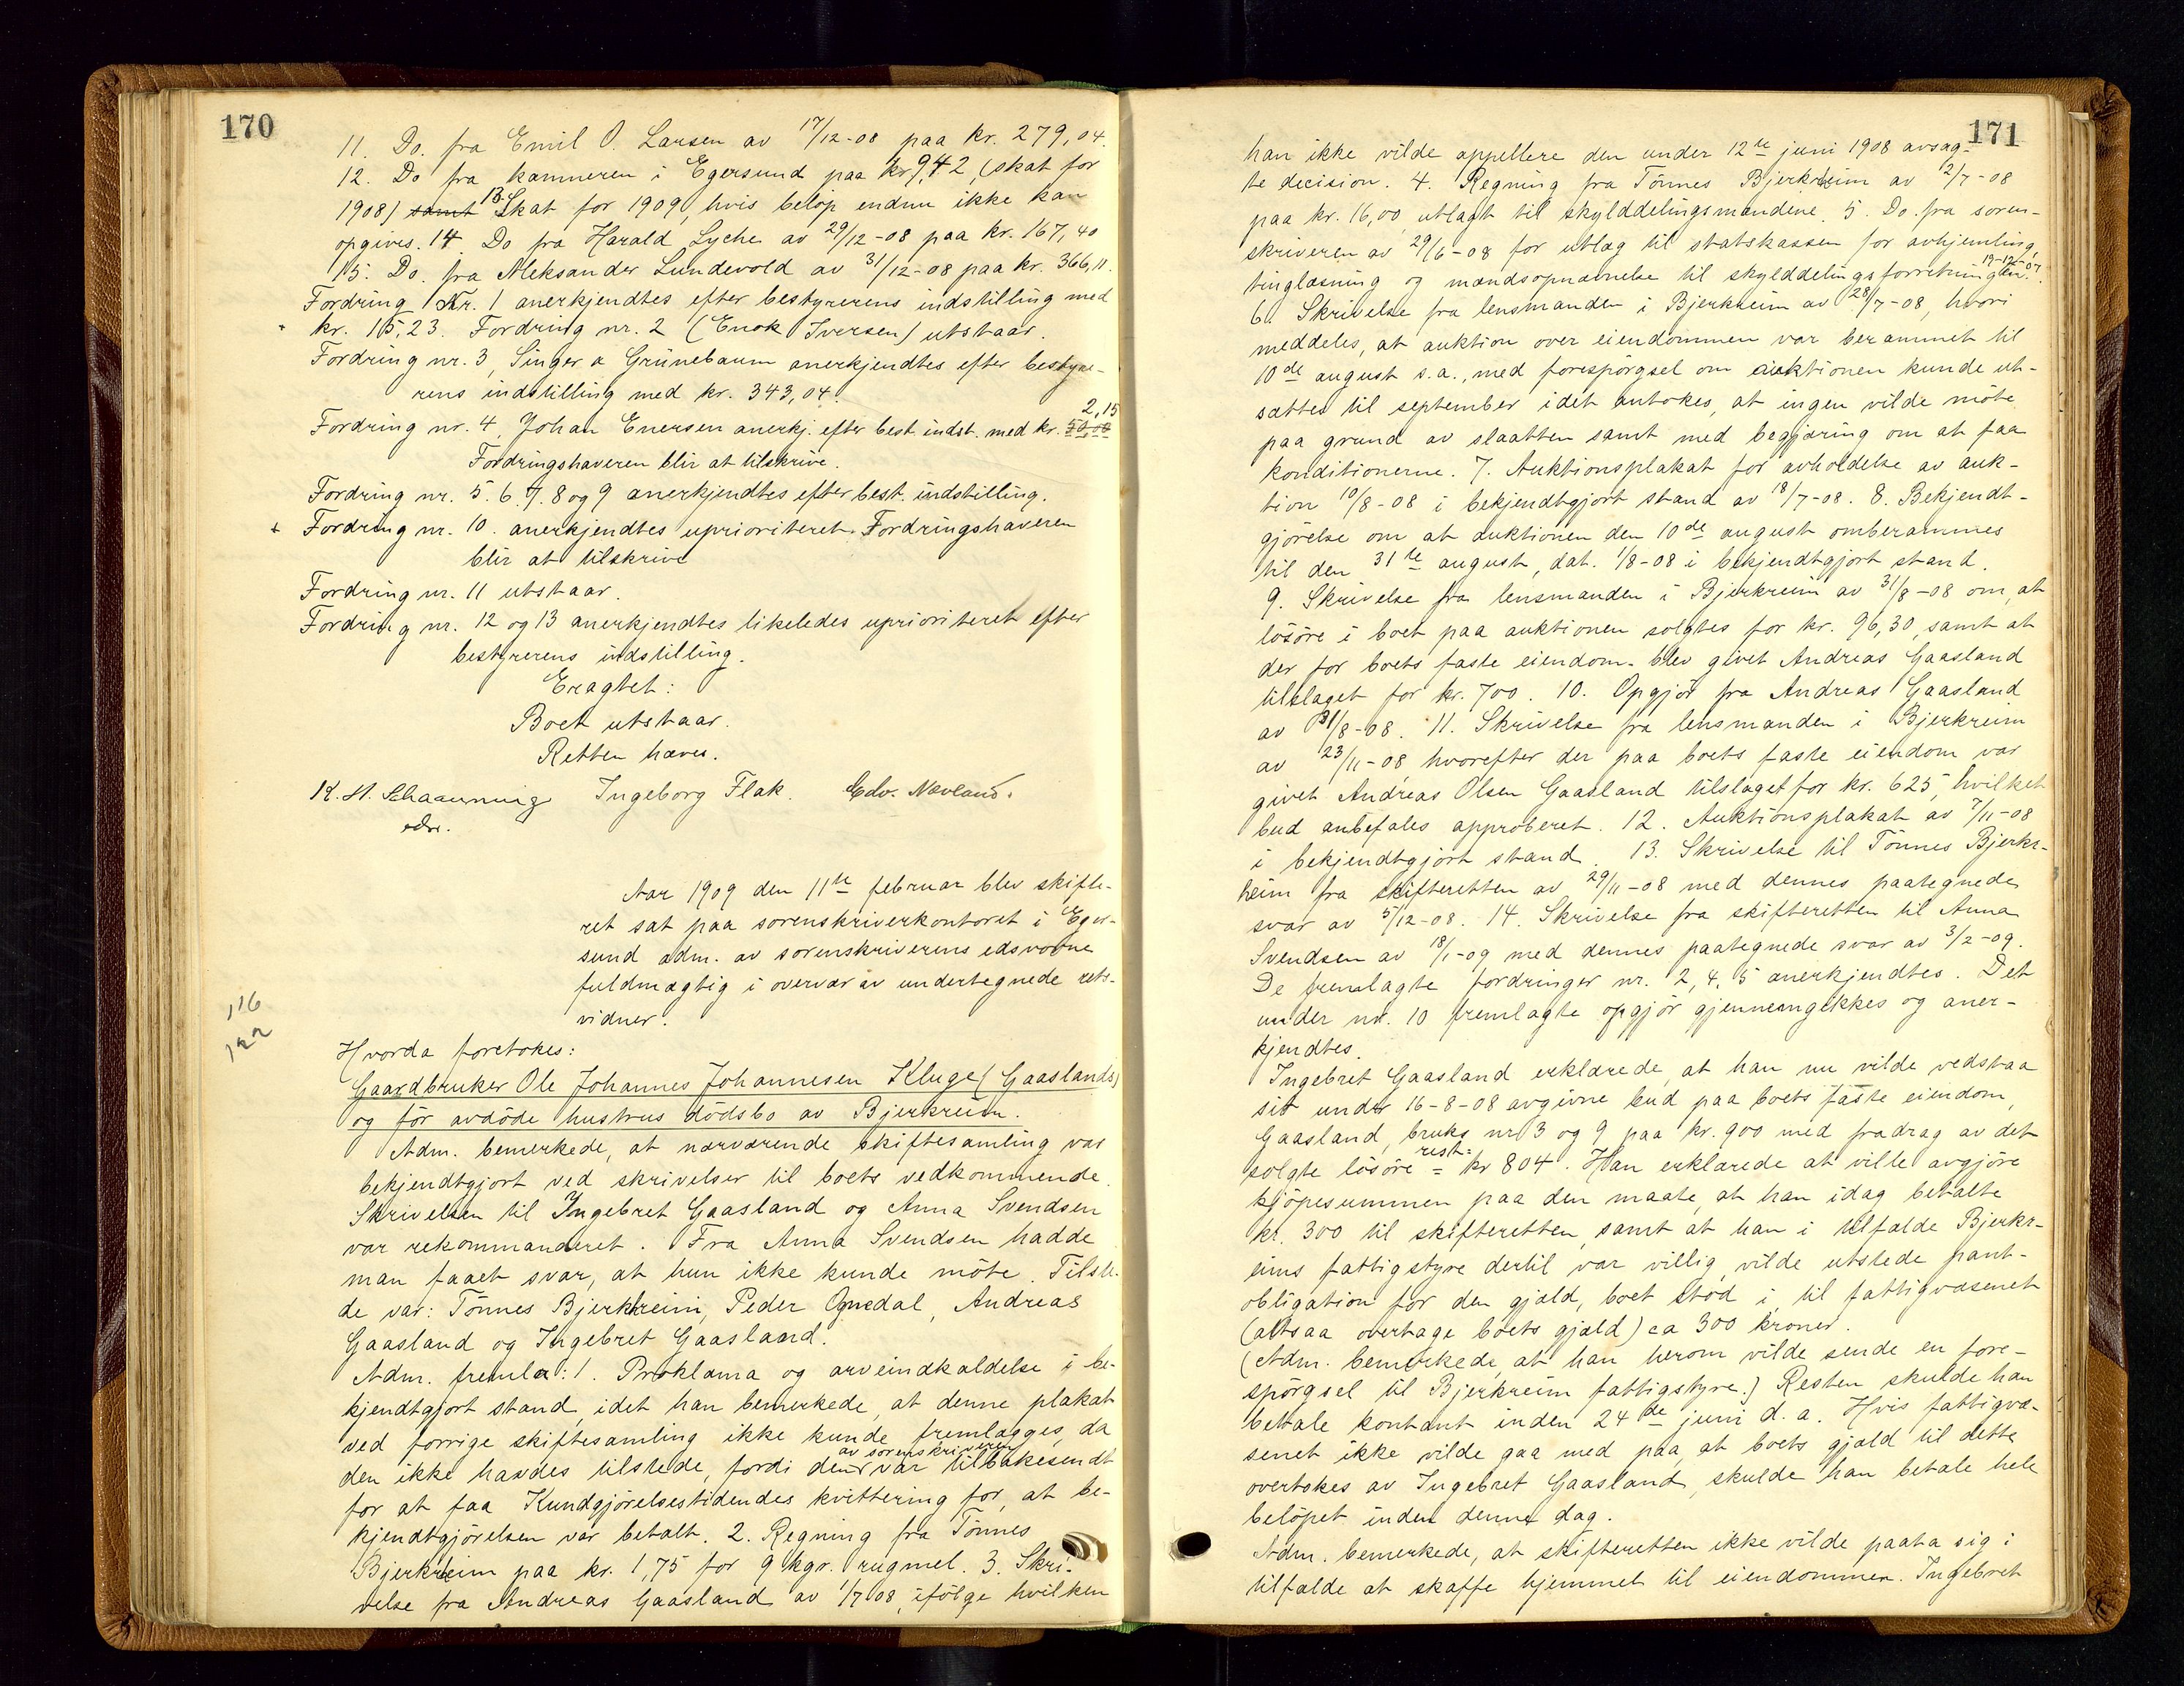 170
11. Do. fra Emil O. Larsen av 17/12-08 paa kr. 279,04.
12. Do fra kæmneren i Egersund paa kr 9,42, (skat for
1908) samt 13. Skat for 1909, hvis beløp endnu ikke kan
opgives. 14. Do fra Harald Lyche av 29/12-08 paa kr. 167,40
15. Do. fra Aleksander Lundevold av 31/12-08 paa kr. 366,11.
Fordring Nr. 1 anerkjendtes efter bestyrerens indstilling med
kr. 15,23. Fordring nr. 2 (Enok Iversen) utstaar.
Fordring nr. 3, Singer & Grünebaum anerkjendtes efter besty-
rens indstilling med kr. 343,04.
Fordring nr. 4, Johan Enersen anerkj. efter best. indst. med kr. 2,15
Fordringshaveren blir at tilskrive.
Fordring nr. 5. 6. 7. 8 og 9 anerkjendtes efter best. indstilling.
+ Fordring nr. 10. anerkjendtes uprioriteret. Fordringshaveren
blir at tilskrive
Fordring nr. 11 utstaar.
Fordring nr. 12 og 13 anerkjendtes likeledes uprioriteret efter
bestyrerens indstilling.
Eragtet:
Boet utstaar.
Retten hæves.
K. H. Schaanning Ingeborg Flak. Edv. Nævland.
edsv.
Aar 1909 den 11te februar blev skifte-
ret sat paa sorenskriverkontoret i Eger-
sund adm. av sorenskriverens edsvorne
fuldmægtig i overvær av undertegnede rets-
vidner.
116
122
Hvorda foretokes:
Gaardbruker Ole Johannes Johannesen Kluge (Gaaslands)
og før avdøde hustrus dødsbo av Bjerkreim.
Adm. bemerkede, at nærværende skiftesamling var
bekjendtgjort ved skrivelser til boets vedkommende.
Skrivelsen til Ingebret Gaasland og Anna Svendsen
var rekommanderet. Fra Anna Svendsen hadde
man faaet svar, at hun ikke kunde møte. Tilste-
de var: Tønnes Bjerkreim, Peder Ognedal, Andreas
Gaasland og Ingebret Gaasland.
Adm. fremla: 1. Proklama og arveindkaldelse i be-
kjendtgjort stand, idet han bemerkede, at denne plakat
ved forrige skiftesamling ikke kunde fremlægges, da
den ikke havdes tilstede, fordi den av sorenskriveren var tilbakesendt
for at faa Kundgjørelsestidendes kvittering for, at be-
kjendtgjørelsen var betalt. 2. Regning fra Tønnes
Bjerkreim paa kr. 1,75 for 9 kgr. rugmel. 3. Skri-
velse fra Andreas Gaasland av 1/7 08, ifølge hvilken
171
han ikke vilde appellere den under 12te juni 1908 avsag-
te decision. 4. Regning fra Tønnes Bjerkreim av 2/7-08
paa kr. 16,00, utlagt til skylddelingsmændene. 5. Do. fra soren-
skriveren av 29/6-08 for utlæg til statskassen for avhjemling,
tinglæsning og mændsopnævnelse til skylddelingsforretningen. 19-12-07
6. Skrivelse fra lensmanden i Bjerkreim av 28/7-08, hvori
meddeles, at auktion over eiendommen var berammet til
10de august s.a., med forespørgsel om auktionen kunde ut-
sættes til september idet antokes, at ingen vilde møte
paa grund av slaatten samt med begjæring om at faa
konditionerne. 7. Auktionsplakat for avholdelse av auk-
tion 10/8-08 i bekjendtgjort stand av 18/7-08. 8. Bekjendt-
gjørelse om at auktionen den 10de august omberammes
til den 31te august, dat. 1/8-08 i bekjendtgjort stand.
9. Skrivelse fra lensmanden i Bjerkreim av 31/8-08 om, at
løsøre i boet paa auktionen solgtes for kr. 96,30, samt at
der for boets faste eiendom blev givet Andreas Gaasland
tilslaget for kr. 700. 10. Opgjør fra Andreas Gaasland
av 31/8-08. 11. Skrivelse fra lensmanden i Bjerkreim
av 23/11-08 hvorefter der paa boets faste eiendom var
givet Andreas Olsen Gaasland tilslaget for kr. 625, hvilket
bud anbefales approberet. 12. Auktionsplakat av 7/11-08
i bekjendtgjort stand. 13. Skrivelse til Tønnes Bjerkr-
heim fra skifteretten av 29/11-08 med dennes paategnede
svar av 5/12-08. 14. Skrivelse fra skifteretten til Anna
Svendsen av 18/1-09 med dennes paategnede svar av 3/2-09.
De fremlagte fordringer nr. 2, 4, 5 anerkjendtes. Det
under nr. 10 fremlagte opgjør gjennemgikkes og aner-
kjendtes.
Ingebret Gaasland erklærede, at han nu vilde vedstaa
sit under 16-8-08 avgivne bud paa boets faste eiendom,
Gaasland, bruks nr 3 og 9 paa kr. 900 med fradrag av det
solgte løsøre rest: = kr 804. Han erklærede at ville avgjøre
kjøpesummen paa den maate, at han idag betalte
kr. 300 til skifteretten, samt at han i tilfælde Bjerkr-
eims fattigstyre dertil var villig, vilde utstede pant-
obligation for den gjæld, boet stod i, til fattigvæsenet
(altsaa overtage boets gjæld) ca 300 kroner.
(Adm. bemerkede, at han herom vilde sende en fore-
spørgsel til Bjerkreim fattigstyre.) Resten skulde han
betale kontant inden 24de juni d. a. Hvis fattigvæ-
senet ikke vilde gaa med paa, at boets gjæld til dette
overtokes av Ingebret Gaasland, skulde han betale hele
beløpet inden denne dag.
Adm. bemerkede, at skifteretten ikke vilde paata sig i
tilfælde at skaffe hjemmel til eiendommen. Ingebret